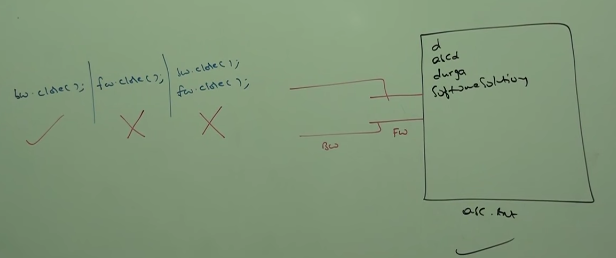 bw.close();
fw.close();
bw.close();
fw.close();
d
abcd
durga
SoftwareSolutions
BW
FW
abc.txt